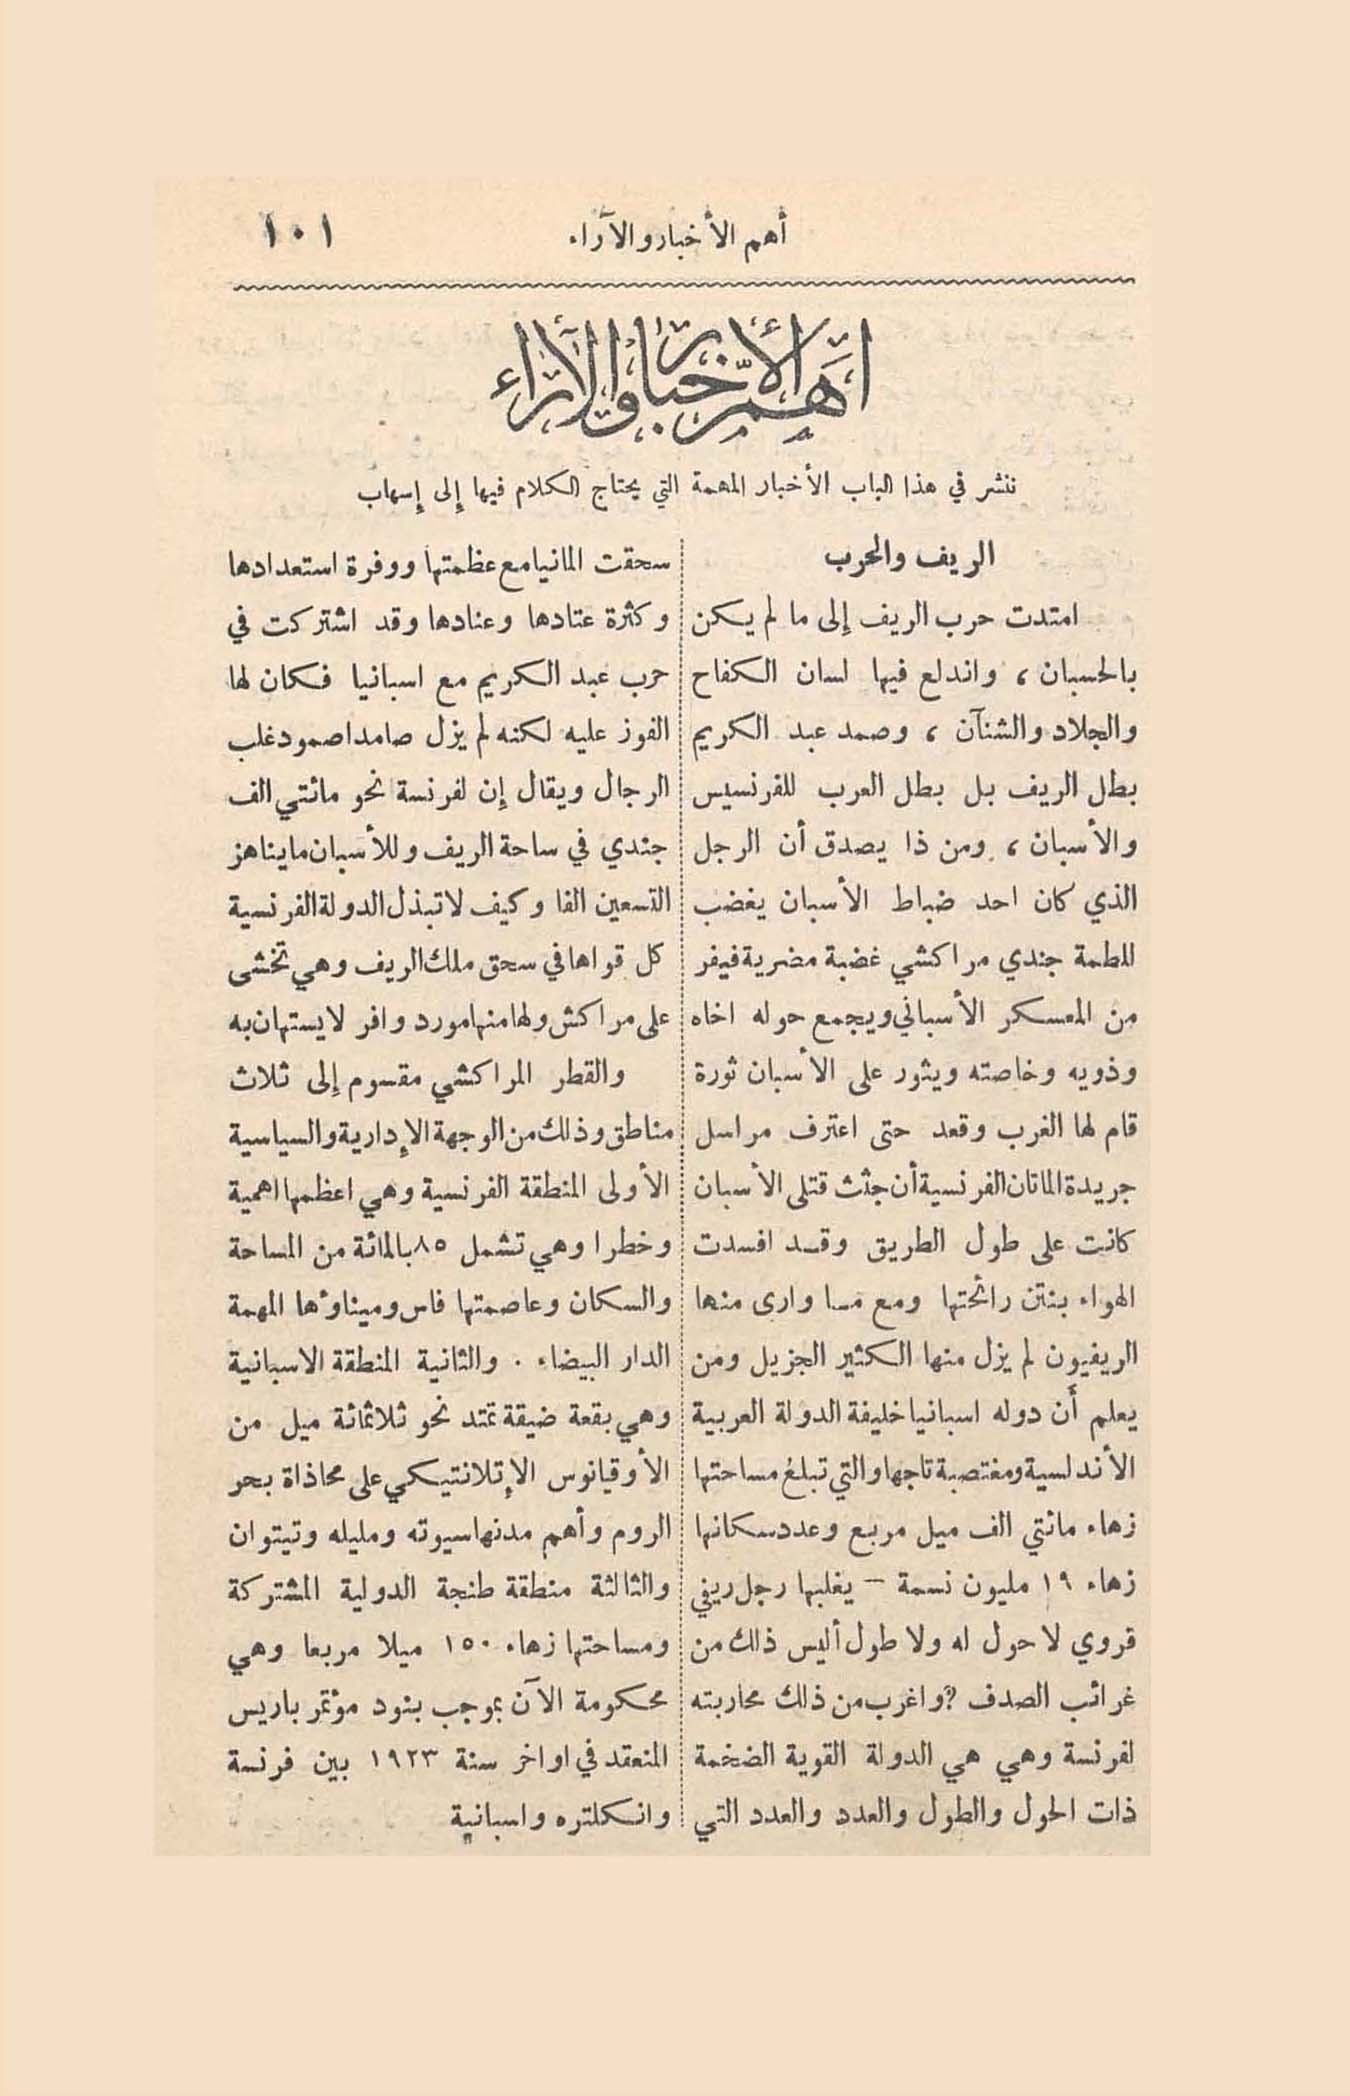 أهم الأخبار والآراء
١٠١
أهم الأخبار والآراء
ننشر في هذا الباب الأخبار المهمة التي يحتاج الكلام فيها إلى إسهاب
الريف والحرب
امتدت حرب الريف إلى ما لم يكن
بالحسبان ، واندلع فيها لسان الكفاح
والجلاد والشنآن ، وصمد عبد الكريم
بطل الريف بل بطل العرب للفرنسيس
والأسبان ، ومن ذا يصدق أن الرجل
الذي كان احد ضباط الأسبان يغضب
للطمة جندي مراكشي غضبة مضرية فيفر
من المعسكر الأسباني ويجمع حوله اخاه
وذويه وخاصته ويثور على الأسبان ثورة
قام لها الغرب وقعد حتى اعترف مراسل
جريدة الماتان الفرنسية أن جثث قتلى الأسبان
كانت على طول الطريق وقد افسدت
الهواء بنتن رائحتها ومع ما وارى منها
الريفيون لم يزل منها الكثير الجزيل ومن
يعلم أن دوله اسبانيا خليفة الدولة العربية
الأندلسية ومغتصبة تاجها والتي تبلغ مساحتها
زهاء مائتي الف ميل مربع وعدد سكانها
زهاء ١٩ مليون نسمة – يغلبها رجل ريفي
قروي لا حول له ولا طول أليس ذلك من
غرائب الصدف ؟ واغرب من ذلك محاربته
لفرنسة وهي هي الدولة القوية الضخمة
ذات الحول والطول والعدد والعدد التي
سحقت المانيا مع عظمتها ووفرة استعدادها
وكثرة عتادها وعنادها وقد اشتركت في
حرب عبد الكريم مع اسبانيا فكان لها
الفوز عليه لكنه لم يزل صامدا صمود غلب
الرجال ويقال إن لفرنسة نحو مائتي الف
جندي في ساحة الريف وللأسبان ما يناهز
التسعين الفا وكيف لا تبذل الدولة الفرنسية
كل قواها في سحق ملك الريف وهي تخشى
على مراكش ولها منها مورد وافر لا يستهان به
والقطر المراكشي مقسوم إلى ثلاث
مناطق وذلك من الوجهة الإدارية والسياسية
الأولى المنطقة الفرنسية وهي اعظمها اهمية
وخطرا وهي تشمل ٨٥ بالمائة من المساحة
والسكان وعاصمتها فاس وميناؤها المهمة
الدار البيضاء . والثانية المنطقة الاسبانية
وهي بقعة ضيقة تمتد نحو ثلاثمائة ميل من
الأوقيانوس الإتلانتيكي على محاذاة بحر
الروم وأهم مدنها سيوته ومليله وتيتوان
والثالثة منطقة طنجة الدولية المشتركة
ومساحتها زهاء ١٥٠ ميلا مربعا وهي
محكومة الآن بموجب بنود مؤتمر باريس
المنعقد في اواخر سنة ١٩٢٣ بين فرنسة
وانكلتره واسبانية